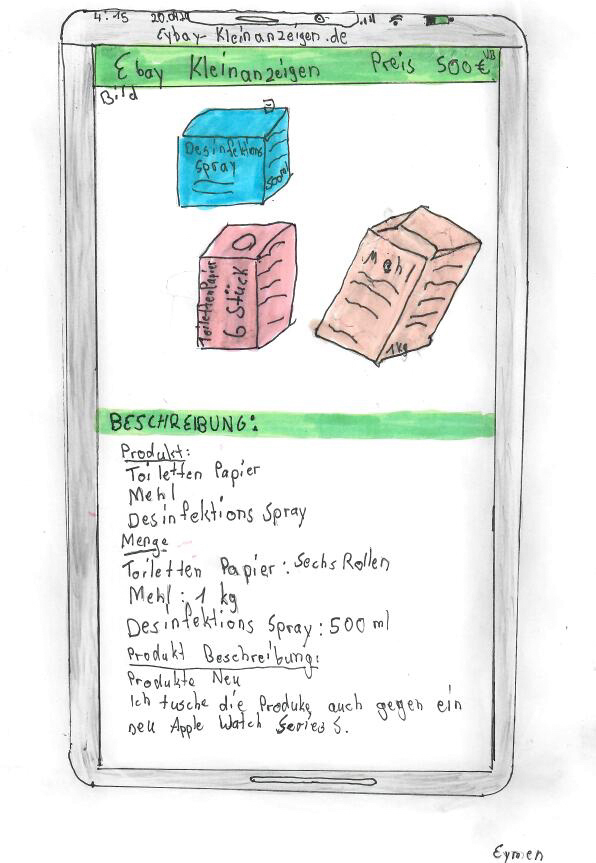 4:15 20.04.21
Eybay-Kleinanzeigen.de
Ebay Kleinanzeigen Preis 500€ VB
Bild
Desinfektions
Spray
500ml
Toiletten Papier
6 Stück
Mehl
1kg
BESCHREIBUNG:
Produkt:
Toiletten Papier
Mehl
Desinfektions Spray
Menge
Toiletten Papier: Sechs Rollen
Mehl: 1 kg
Desinfektions Spray: 500 ml
Produkt Beschreibung:
Produkte Neu
Ich tusche die Produke auch gegen ein
neu Apple Watch Series 5.
Eymen